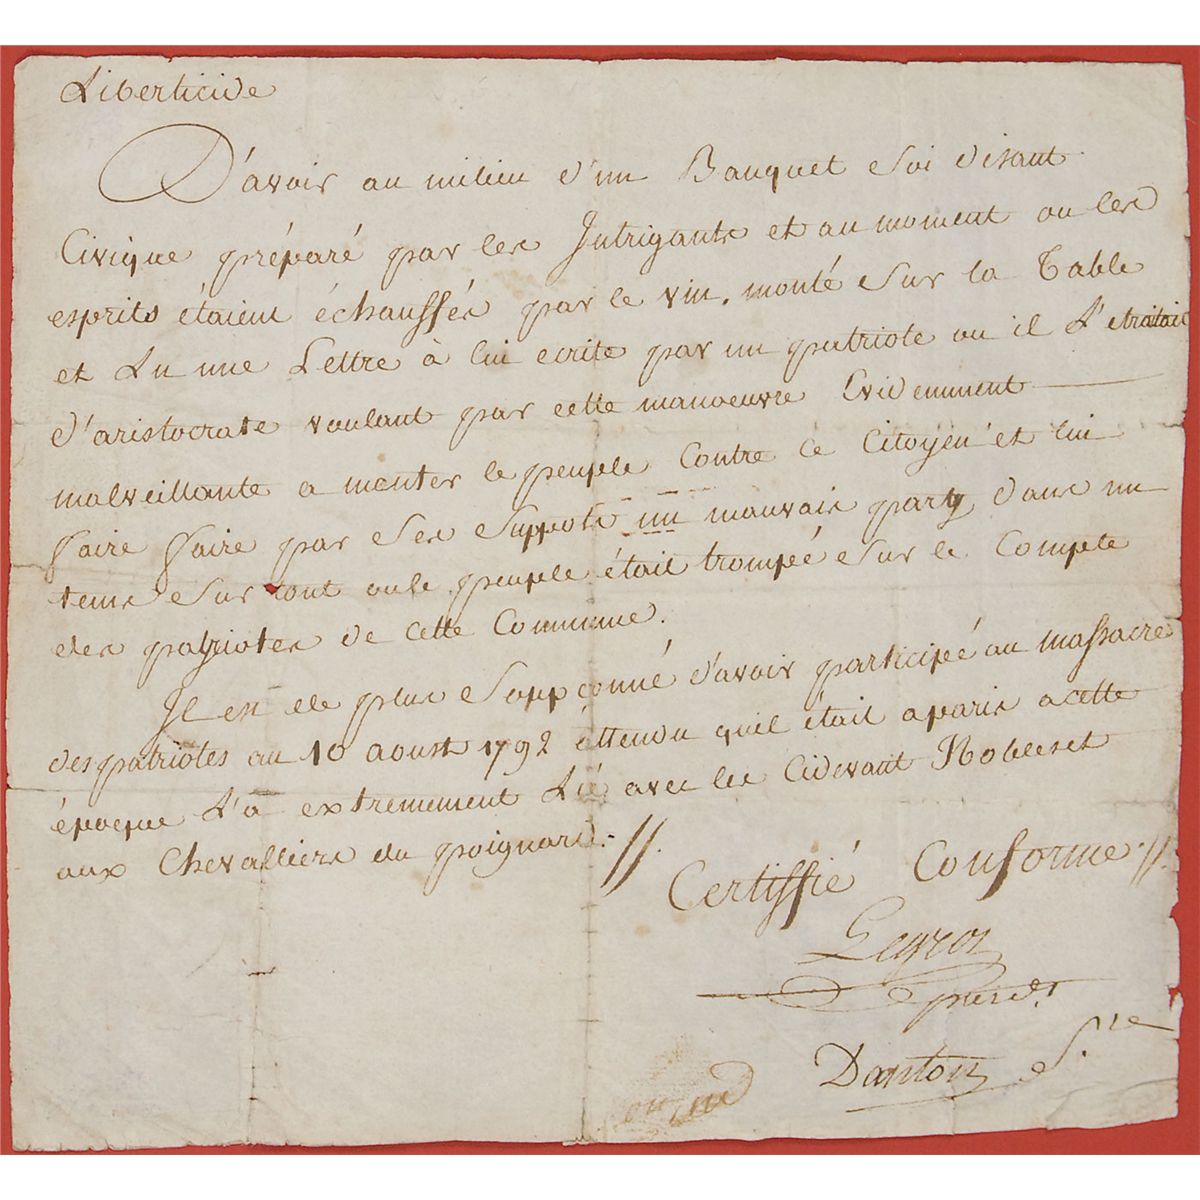 Liberticide
D'avoir au milieu d'un Banquet Soi disant
Civique préparé par les Intrigants et au moment ou les
esprits étaient échauffés par le vin, monté Sur la Table
et Lu une Lettre à lui ecrite par un patriote ou il L'etraitait
d'aristocrate voulant par cette manoeuvre Evidemment
malveillante a monter le peuple Contre ce Citoyen et lui
faire faire par ses Suppots un mauvais party dans un
tems Sur tout ou le peuple était trompée Sur le Compte
des patriotes de cette Commune.
Il est de plus Soupçonné d'avoir participé au massacre
des patriotes au 10 aoust 1792 attendu quil était a paris acette
époque L'a extremement Lié avec les Cidevant Nobles et
aux Chevalliers du poignard. //.
Certiffié Conforme //.
Legros
presdt
Danton S.re